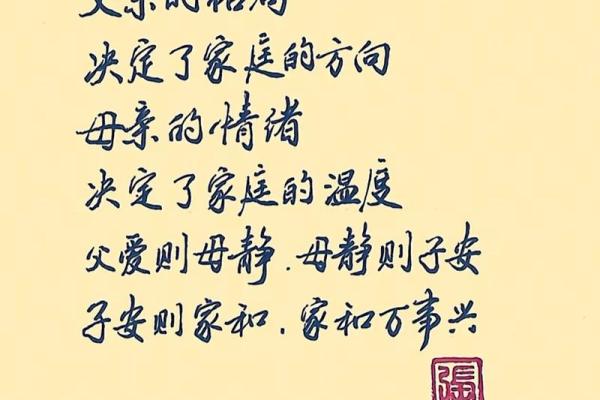 父亲的格局
决定了家庭的方向
母亲的情绪
决定了家庭的温度
父爱则母静.母静则子安
子安则家和.家和万事兴
張